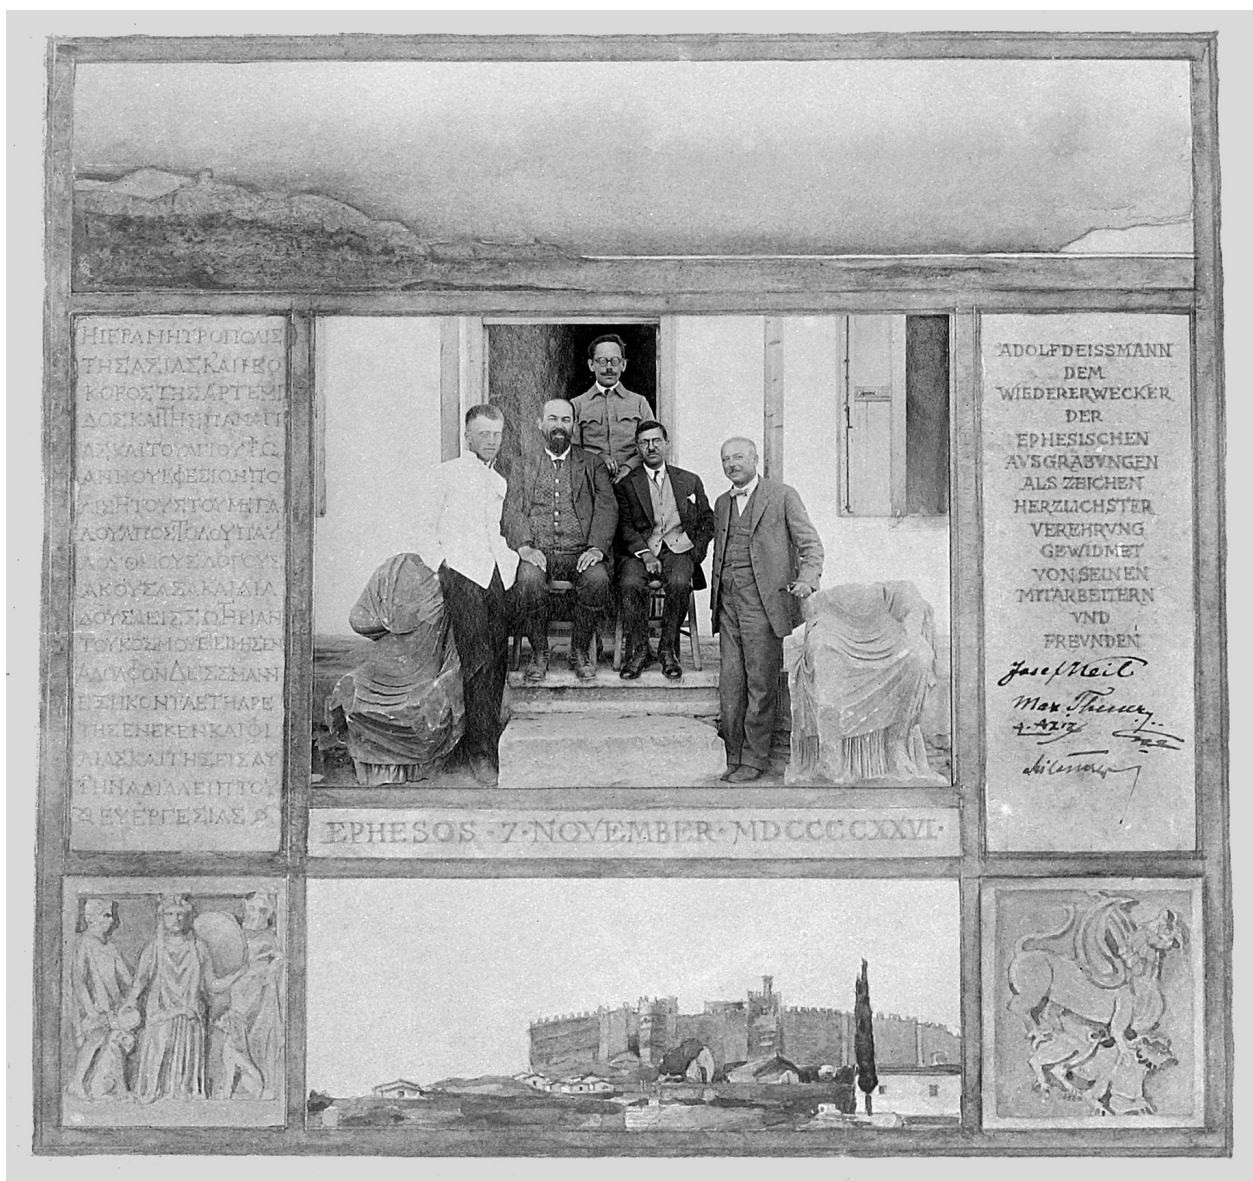 ΗΙΕΡΑΜΗΤΡΟΠΟΛΙΣ
ΤΗΣΑΣΙΑΣΚΑΙΝΕΟ
ΚΟΡΟΣΤΗΣΑΡΤΕΜΙ
ΔΟΣΚΑΙΤΗΣΠΑΝΑΓΙ
ΑΣΚΑΙΤΟΥΑΓΙΟΥΙΩ
ΑΝΝΟΥΕΦΕΣΙΩΝΠΟ
ΛΙΣΗΤΟΥΣΤΟΥΜΕΓΑ
ΛΟΥΑΠΟΣΤΟΛΟΥΠΑΥ
ΛΟΥΘΕΙΟΥΣΛΟΓΟΥΣ
ΑΚΟΥΣΑΣΑΚΑΙΔΙΑ
ΔΟΥΣΑΕΙΣΣΩΤΗΡΙΑΝ
ΤΟΥΚΟΣΜΟΥΕΤΕΙΜΗΣΕΝ
ΑΔΟΛΦΟΝΔΕΙΣΣΜΑΝΝ
ΕΞΗΚΟΝΤΑΕΤΗΑΡΕ
ΤΗΣΕΝΕΚΕΝΚΑΙΦΙ
ΛΙΑΣΚΑΙΤΗΣΕΙΣΑΥ
ΤΗΝΑΔΙΑΛΕΙΠΤΟΥ
ΕΥΕΡΓΕΣΙΑΣ
ADOLF DEISSMANN
DEM
WIEDERERWECKER
DER
EPHESISCHEN
AVSGRABVNGEN
ALS ZEICHEN
HERZLICHSTER
VEREHRVNG
GEWIDMET
VON SEINEN
MITARBEITERN
VND
FREVNDEN
Josef Keil
Max Theuer
A. Aziz
EPHESOS · 7 · NOVEMBER · MDCCCCXXVI ·